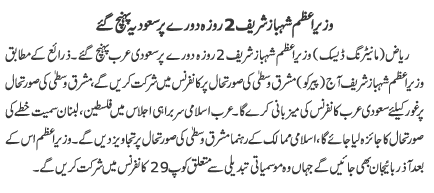 وزیراعظم شہباز شریف 2 روزہ دورے پر سعودیہ پہنچ گئے
ریاض (مانیٹرنگ ڈیسک) وزیراعظم شہباز شریف 2 روزہ دورے پر سعودی عرب پہنچ گئے۔ ذرائع کے مطابق
وزیراعظم شہباز شریف آج (پیر کو) مشرق وسطیٰ کی صورتحال پر کانفرنس میں شرکت کریں گے، مشرق وسطیٰ کی صورتحال
پر غور کیلئے سعودی عرب کانفرنس کی میزبانی کرے گا۔ عرب اسلامی سربراہی اجلاس میں فلسطین، لبنان سمیت خطے کی
صورتحال کا جائزہ لیا جائے گا، اسلامی ممالک کے رہنما مشرق وسطیٰ کی صورتحال پر تجاویز دیں گے۔ وزیراعظم اس کے
بعد آذربائیجان بھی جائیں گے جہاں وہ موسمیاتی تبدیلی سے متعلق کوپ 29 کانفرنس میں شرکت کریں گے۔